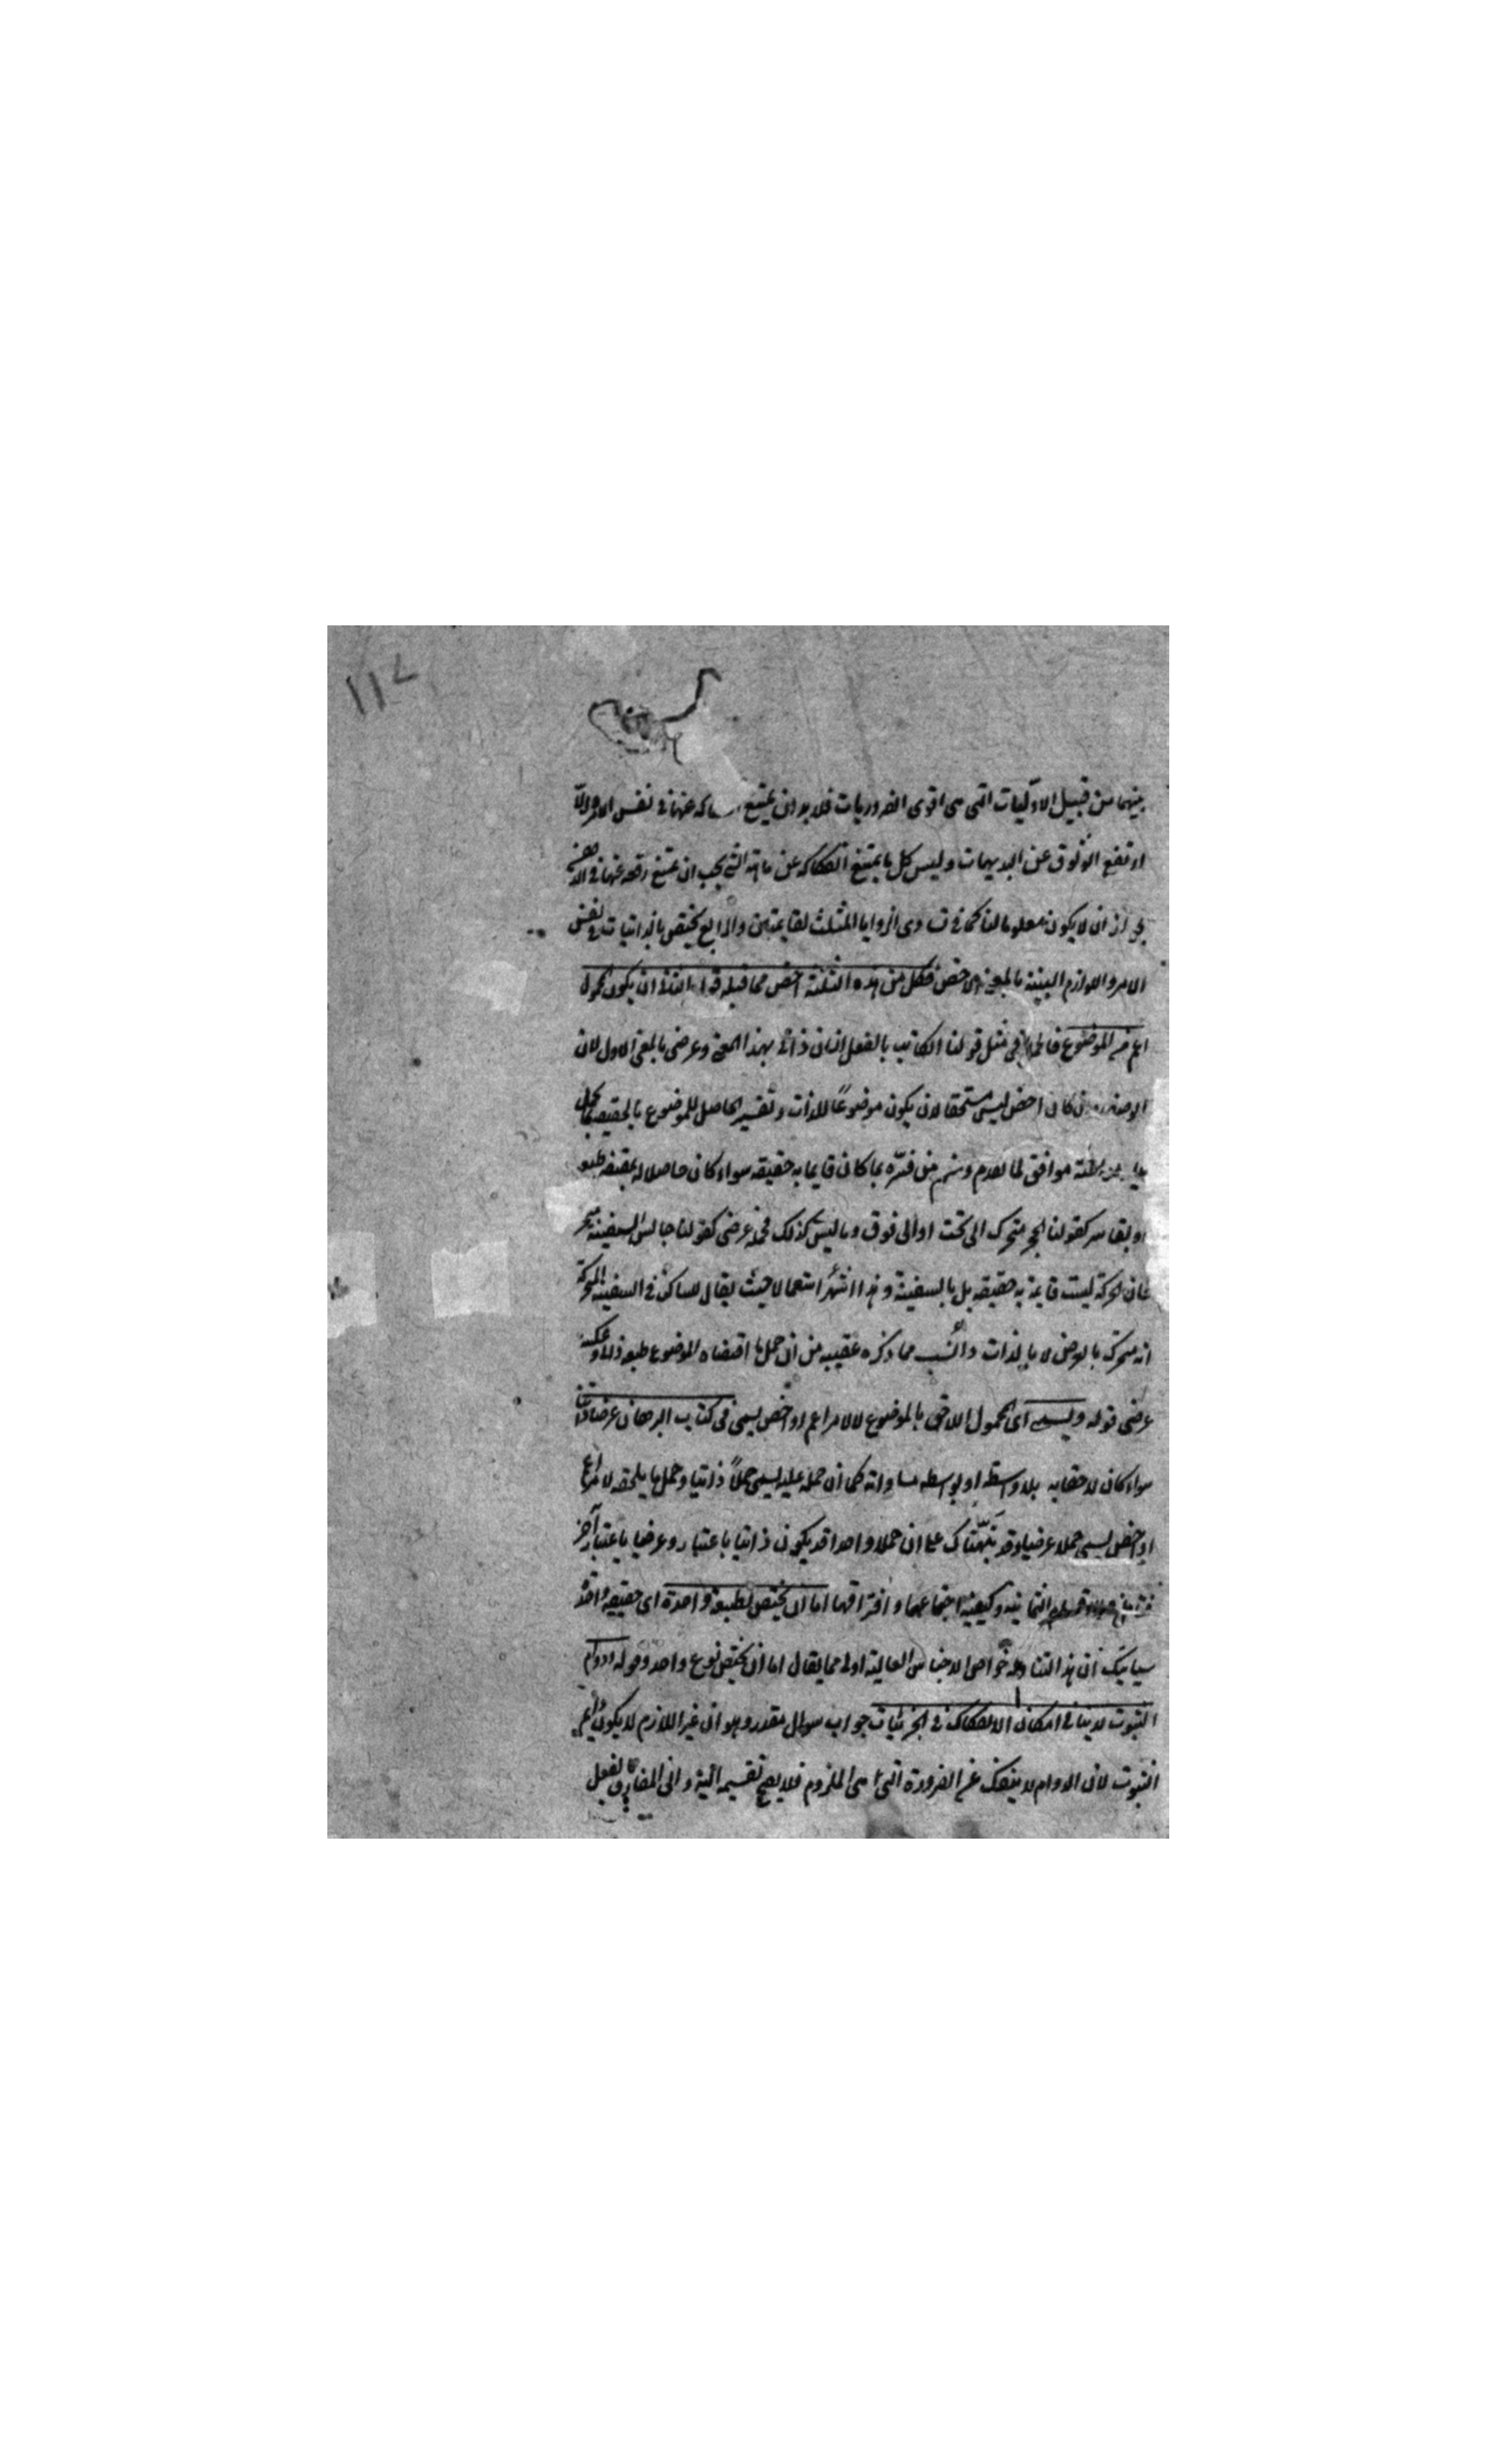 ١١٧
بينهما من قبيل الاوّليات التى هى اقوى الضروريات فلا بد وان يمتنع عنها فى نفس الامر والّا
ارتفع الوثوق عن البديهيات وليس كل ما يمتنع انفكاكه عن ماهية الشئ يجب ان يمتنع رفعه عنها فى الذهن
لجواز ان لا يكون معلوما لنا كما فى تساوى الزوايا المثلث لقايمتين والرابع يختص بالذاتيات نفس
الامر واللوازم البينة بالمعنى الاخص فكل من هذه الثلثة اخص مما قبله ان يكون المحمول
اعم من الموضوع فى مثل قولنا الكاتب بالفعل انسان ذاتى بهذا المعنى وعرضى بالمعنى الاول لان
الوصف كان اخص ليس مستحقا لان يكون موضوعًا للذات وتفسير الحاصل للموضوع بالحقيقة
موافق لما تقدم ومنهم من فسّره بما كان قايما به حقيقه سواء كان حاصلا له بمقتضى طبعه
او لقاسر كقولنا الحجر متحرك الى تحت او الى فوق وما ليس كذلك فحمله عرضى كقولنا جالس السفينة متحرك
فان الحركة ليست قايمة به حقيقه بل بالسفينة وهذا اشهر استعمالا حيث يقال للساكن فى السفينة المتحركة
انه متحرك بالعرض لا بالذات وانسب مما ذكره عقيبه من ان حمل ما اقتضاه الموضوع طبعه ذاتى وعكسه
عرضى قوله ويسمى اى المحمول اللاحق بالموضوع لا لامر اعم او اخص يسمى فى كتاب البرهان عرضا ذاتيا
سواء كان لاحقا به بلا واسطة او بواسطه مساواته كما ان حمله عليه يسمى حملاً ذاتيا وحمل ما يلحقه لامر اعم
او اخص يسمى حملا عرضيا وقد نبّهناك على ان حملا واحدا قد يكون ذاتيا باعتبار وعرضيا باعتبار آخر
الثمانية وكيفية اجتماعها وافتراقها اما ان يختص بطبيعة واحدة اى حقيقة واحدة
سياتيك ان هذا التناوله خواص الاجناس العالية اولى مما يقال اما ان يختص نوع واحد وقوله ودوام
الثبوت لا ينافى امكان الانفكاك فى الجزئيات جواب سوال مقدر وهو ان غير اللازم لا يكون دائم
الثبوت لان الدوام لا ينفك عن الضرورة التى هى الملزوم فلا يصح تقسيمه اليه والى المفارق بالفعل